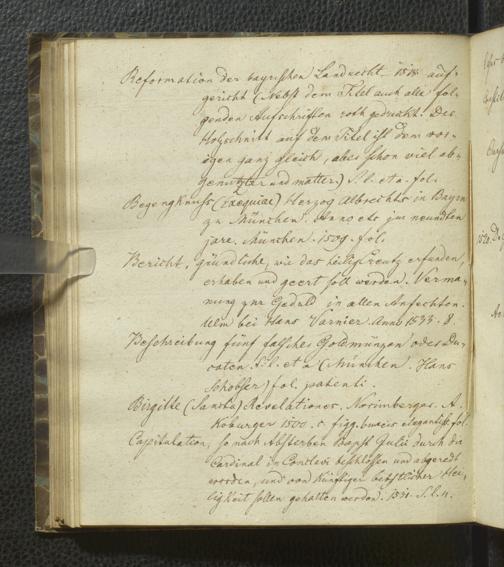 Reformation der bayrischen Landrecht 1518 auf-
gericht (Nebst dem Titel auch alle fol-
genden Aufschriften roth gedruckt. Der
Holzschnitt auf dem Titel ist dem vor-
igen ganz gleich, aber schon viel ab-
genutzter und matter.) S. l. et a. fol.
Begengknuss (exequiae) Herzog Albrechts in Bayrn
zu München. Anno etc im neundten
jare. München. 1509. fol.
Bericht, gründliche, wie das heilig Creutz erfunden,
erhaben und geert soll werden. Verma-
nung zur Geduld in allen Anfechten.
Ulm bei Hans Varnier Anno 1533. 8.
Beschreibung funf falscher Goldmünzen oder Du-
caten S. l. et a (München. Hans
Schobser) fol. patenti.
Birgitte (Sancta) Revelationes. Norimbergae. A.
Koburger 1500. c figg. buxeis elegantiss. fol.
Capitulation, so nach Absterben Bapst Julii durch die
Cardinal in Conclavi beschlossen und abgeredt
worden, und von künftiger bebstlicher Hei-
ligkeit sollen gehalten werden. S. l.